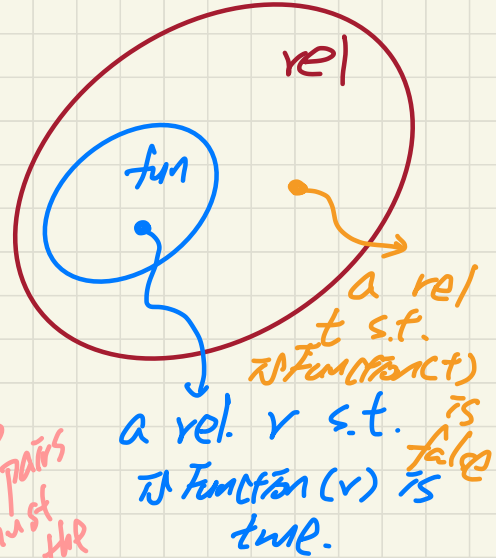 rel
fun
a rel
t s.t.
isFunction(t)
is
false
a rel. r s.t.
isFunction(r) is
true.
pairs
must
the